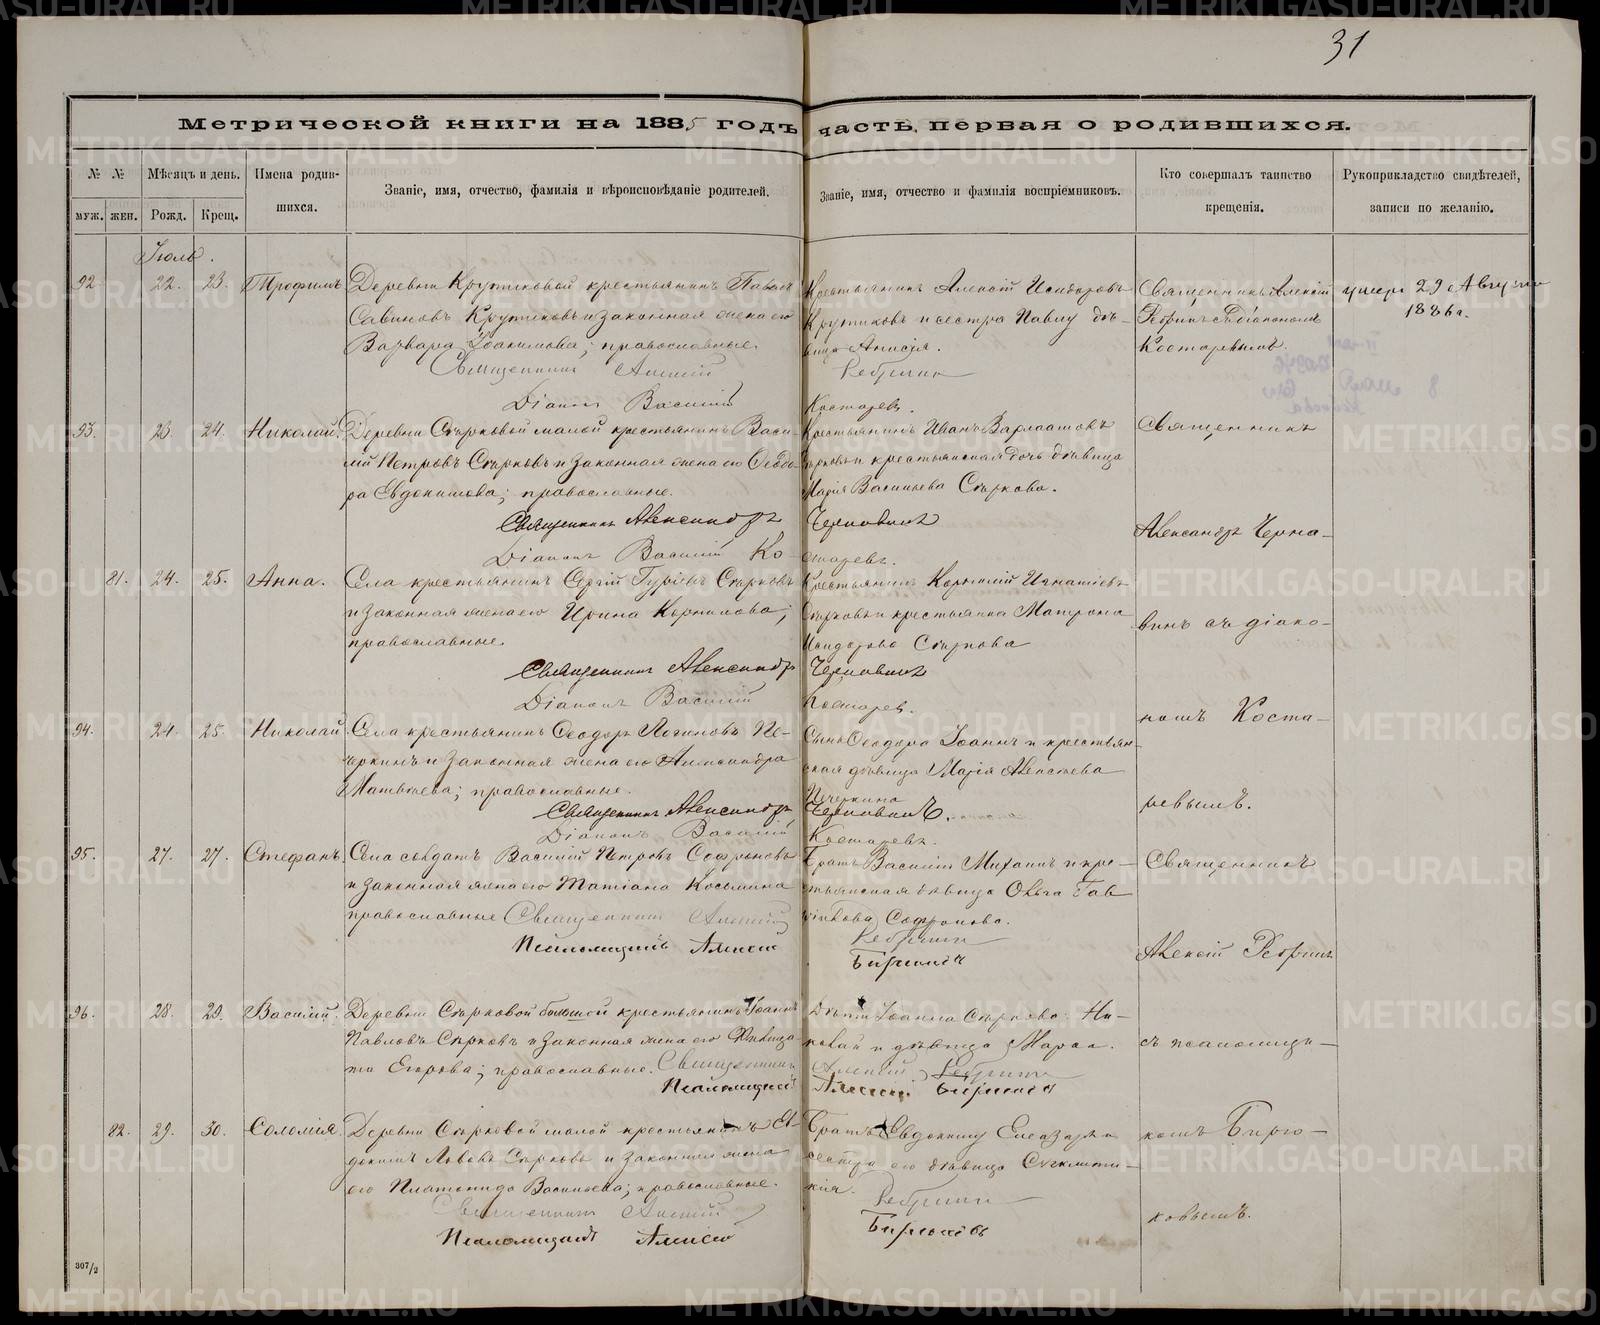 31
Метрической книги на 1885 годъ часть первая о родившихся.
№ №
муж. жен.
Мѣсяцъ и день.
Рожд. Крещ.
Имена родив-
шихся.
Званіе, имя, отчество, фамилія и вѣроисповѣданіе родителей.
Званіе, имя, отчество и фамилія воспріемниковъ.
Кто совершалъ таинство
крещенія.
Рукоприкладство свидѣтелей,
записи по желанію.
Іюль.
92. 22. 23. Трофимъ
Деревни Крутиковой крестьянинъ Павелъ
Савиновъ Крутиковъ и законная жена его
Варвара Іоакимова; православные.
Священникъ Алексій
Діаконъ Василій
Крестьянинъ Алексій Исидоровъ
Крутиковъ и сестра Павлу дѣ-
вица Анисія.
Ребринъ
Костаревъ.
Священникъ Алексій
Ребринъ съ діакономъ
Костаревымъ.
умеръ 29 Августа
1886 г.
93. 23. 24. Николай.
Деревни Сѣрковой малой крестьянинъ Васи-
лій Петровъ Сѣрковъ и законная жена его Ѳеодо-
ра Евдокимова; православные.
Священникъ Александръ
Діаконъ Василій Ко-
Крестьянинъ Иванъ Варлаамовъ
Сѣрковъ и крестьянская дочь дѣвица
Марія Васильева Сѣркова.
Черновинъ
старевъ.
Священникъ
Александръ Черно-
81. 24. 25. Анна.
Села крестьянинъ Сергій Гурьевъ Сѣрковъ
и законная жена его Ирина Корнилова;
православные.
Священникъ Александръ
Діаконъ Василій
Крестьянинъ Корнилій Игнатіевъ
Сѣрковъ и крестьянка Матрона
Исидорова Сѣркова
Черновинъ
Костаревъ.
винъ съ діако-
94. 24. 25. Николай
Села крестьянинъ Ѳеодоръ Логиновъ Пе-
черкинъ и законная жена его Александра
Матвѣева; православные.
Священникъ Александръ
Діаконъ Василій
Сынъ Ѳеодора Іоаннъ и крестьян-
ская дѣвица Марія Алексѣева
Печеркина
Черновинъ.
Костаревъ.
номъ Коста-
ревымъ.
95. 27. 27. Стефанъ.
Села солдатъ Василій Петровъ Софроновъ
и законная жена его Татіана Косьмина
православные Священникъ Алексій
Псаломщикъ Алексій
Братъ Василія Михаилъ и кре-
стьянская дѣвица Ольга Гав
рилова Софронова.
Ребринъ
Бирюковъ
Священникъ
Алексій Ребринъ
96. 28. 29. Василій.
Деревни Сѣрковой большой крестьянинъ Іоаннъ
Павловъ Сѣрковъ и законная жена его
та Егорова; православные. Священникъ
Псаломщикъ
Дѣти Іоанна Сѣркова: Ни-
колай и дѣвица Марѳа.
Алексій Ребринъ
Алексій Бирюковъ
съ псаломщи-
82. 29. 30. Соломія.
Деревни Сѣрковой малой крестьянинъ Ев-
докимъ Львовъ Сѣрковъ и законная жена
его Платонида Васильева; православные.
Священникъ Алексій
Псаломщикъ Алексій
Братъ Евдокиму Елеазаръ и
сестра его дѣвица Синклити-
кія.
Ребринъ
Бирюковъ
комъ Бирю-
ковымъ.
307/2
METRIKI.GASO-URAL.RU